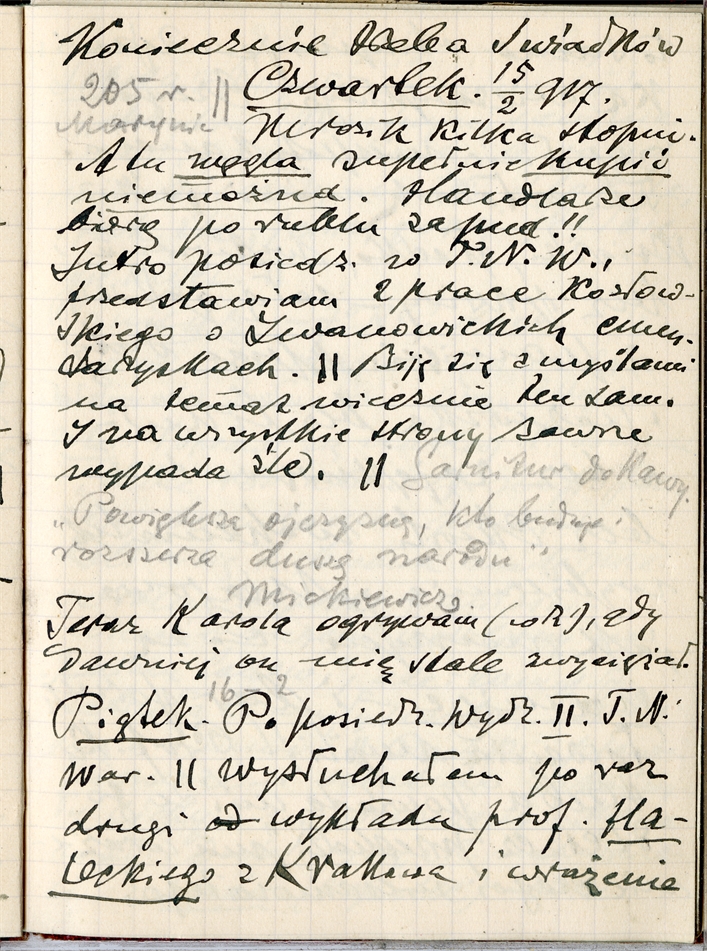 Koniecznie trzeba świadków
205 r. || Czwartek. 15/2 917.
Marynie Mrozik kilka stopni.
A tu węgla zupełnie kupić
niemożna. Handlarze
biorą po rublu za pud.!!
Jutro posiedz. w T.N.W.,
przedstawiam 2 prace Kozłow-
skiego o Iwanowickich cmen-
tarzyskach. || Biję się z myślami
na temat wiecznie ten sam.
I na wszystkie strony zawsze
wypada źle. || Garnitur do Kawy.
„Powiększa ojczyznę, kto buduje i
rozszerza duszę narodu"
Mickiewicz
Teraz Karola ogrywam, gdy
dawniej on mię stale zwyciężał.
16-2
Piątek. Po posiedz. wydz. II. T.N.
War. || wysłuchałem po raz
drugi wykładu prof. Ha-
leckiego z Krakowa i wrażenie